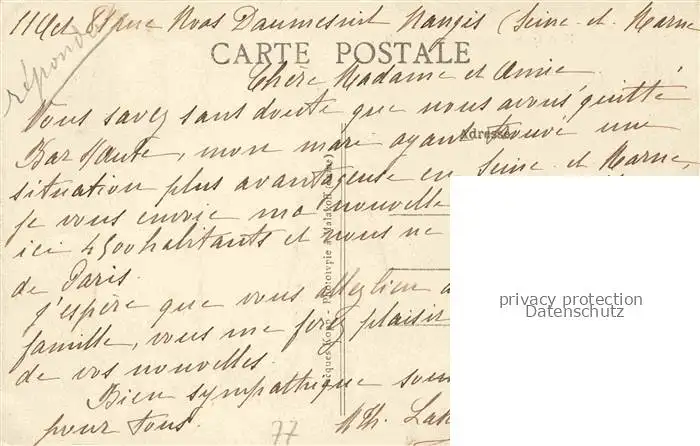 rue Daumesnil Nangis (Seine et Marne
répondu
CARTE POSTALE
Chère Madame et Amie
Vous savez sans doute que nous avons quitté
Adresse
Bar s/Aube, mon mari ayant trouvé une
situation plus avantageuse en Seine et Marne,
je vous envoie ma nouvelle
ici 4500 habitants et nous ne
de Paris.
J'espère que vous allez bien
famille, vous me ferez plaisir
de vos nouvelles.
Bien sympathique
pour tous.
77
privacy protection
Datenschutz